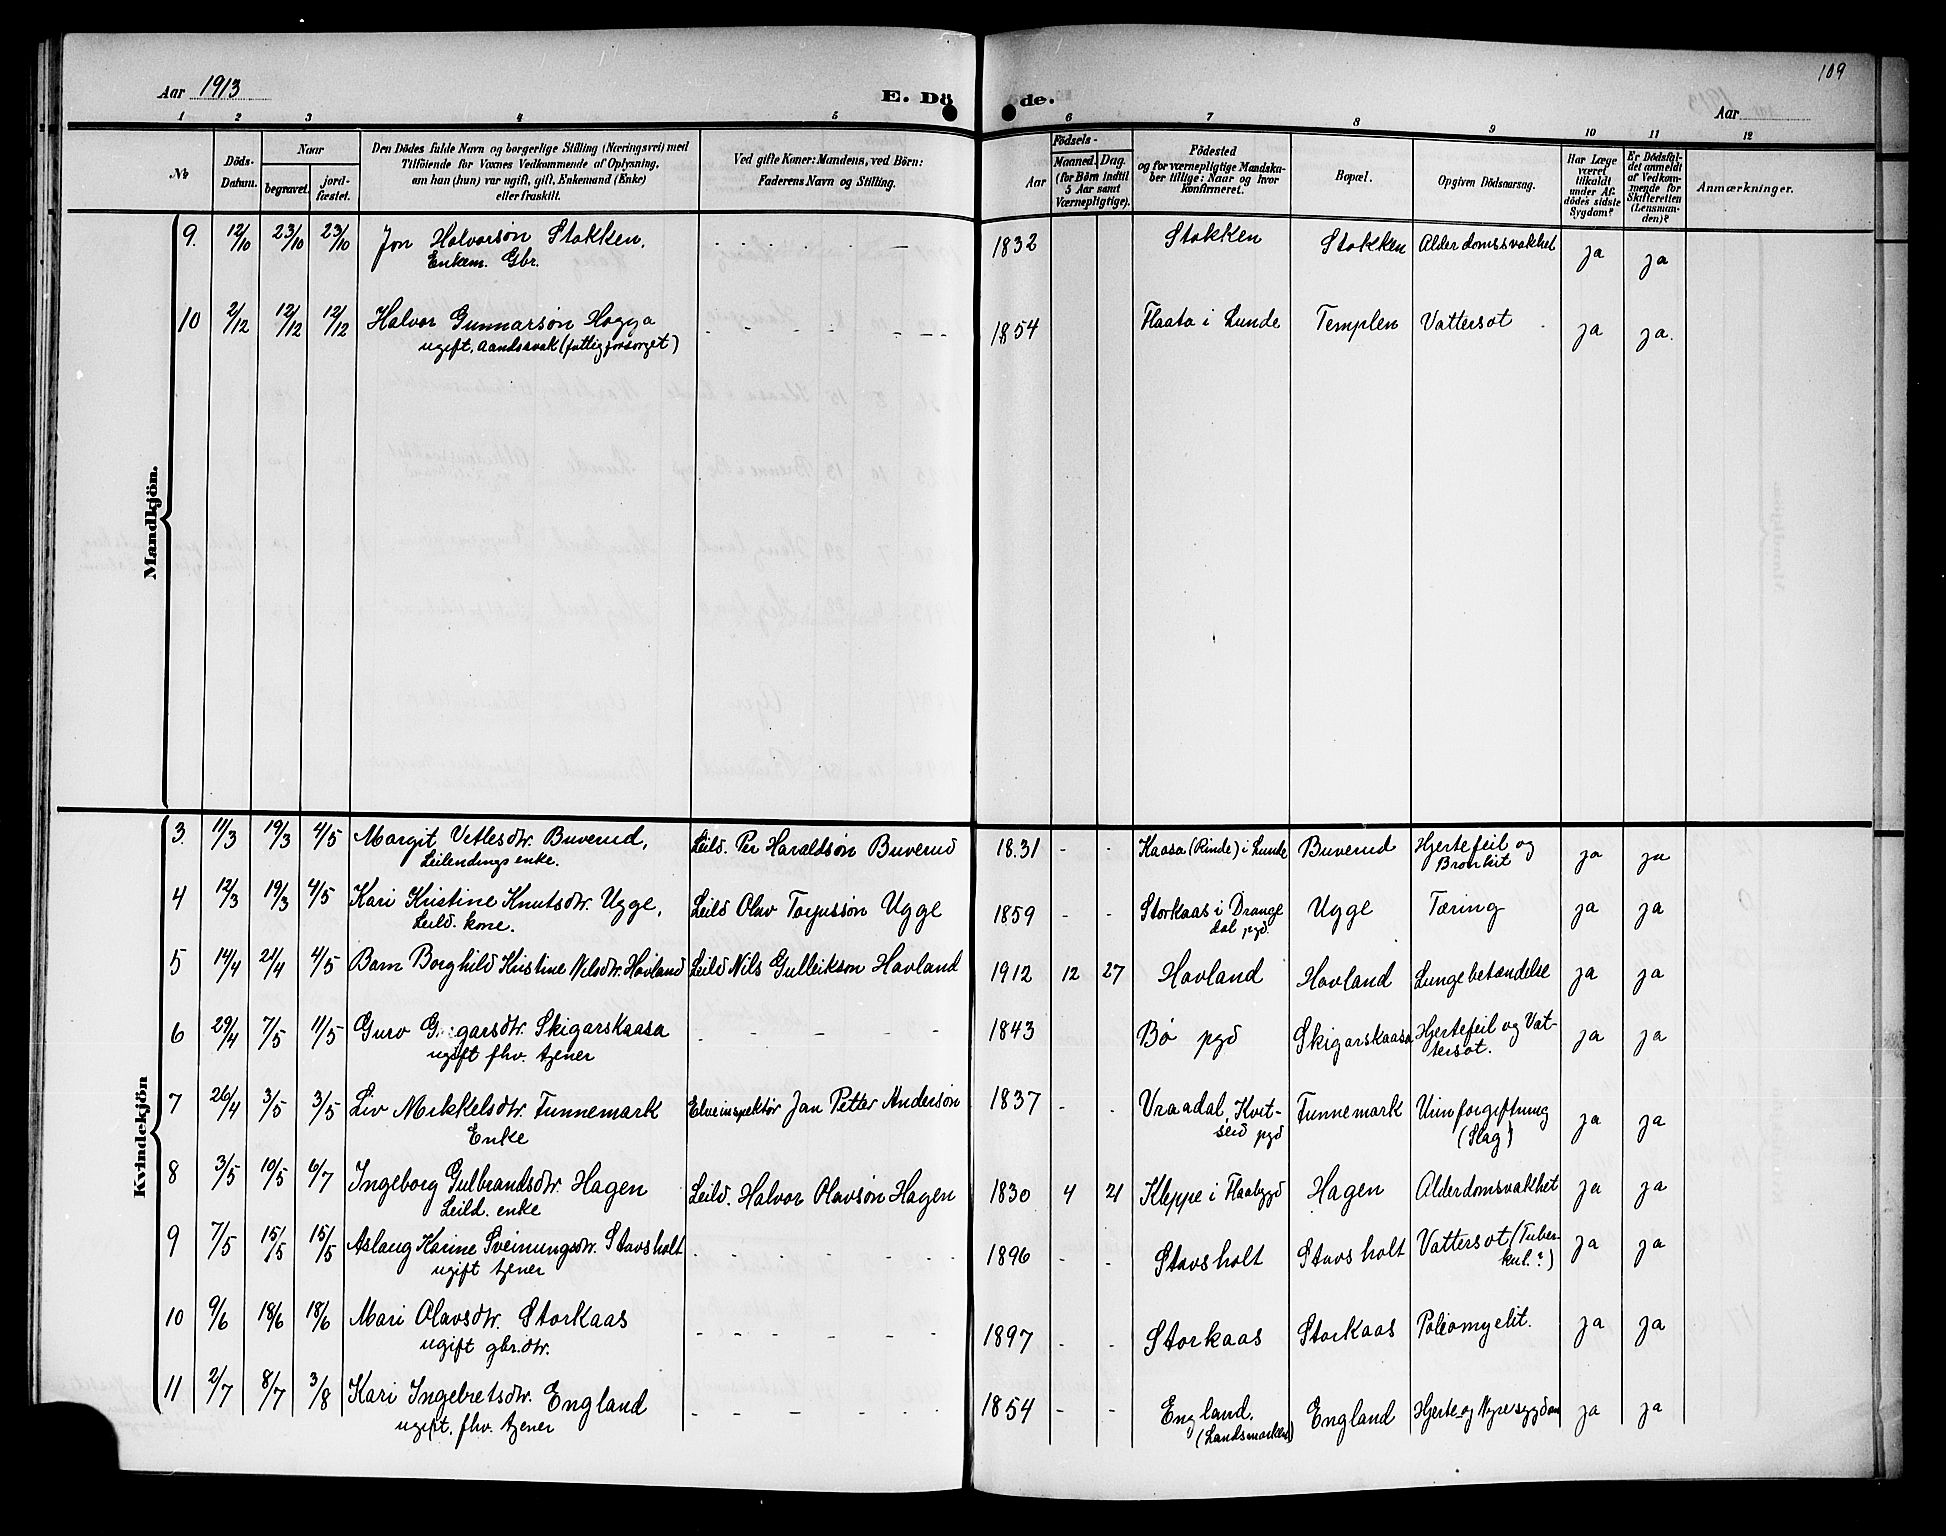 Aar 1913
E. Döde.
109
Aar
1 2 3 4 5 6 7 8 9 10 11 12
№
Döds-Datum.
Naar
begravet.
jordfæstet.
Den Dödes fulde Navn og borgerlige Stilling (Næringsvei) med
Tilföiende for Voxnes Vedkommende af Oplysning,
om han (hun) var ugift, gift, Enkemand (Enke)
eller fraskilt.
Ved gifte Koner: Mandens, ved Börn:
Faderens Navn og Stilling.
Födsels-
Aar
Maaned. Dag.
(for Börn indtil
5 Aar samt
Værnepligtige).
Födested
og for værnepligtige Mandskaber tillige: Naar og hvor
konfirmeret.
Bopæl.
Opgiven Dödsaarsag.
Har Læge
været
tilkaldt
under Afdödes sidste
Sygdom?
Er Dödsfaldet anmeldt
af Vedkommende for
Skifteretten
(Lensmanden)?
Anmærkninger.
Mandkjön.
9. 12/10 23/10 23/10 Jon Halvorsøn Stokken, 1832 Stokken Stokken Alderdomssvakhet ja ja
Enkem. Gbr.
10 2/12 12/12 12/12 Halvor Gunnarsøn Hogga 1854 Flaata i Lunde Templen Vattersot ja ja.
ugift, aandssvak (fattigforsorget)
Kvindekjön
3. 11/3 19/3 4/5 Margit Vetlesdtr. Buverud, Leild. Per Haraldsøn Buverud 1831 - - Kaasa (Rinde) i Lunde Buverud Hjertefeil og ja ja
Leilendings enke. Bronkit
4 12/3 19/3 4/5 Kari Kristine Knutsdtr. Ugge, Leild Olav Torjussøn Ugge 1859 - - Storkaas i Drange Ugge Tæring ja ja
Leild. kone. dal pgd.
5 14/4 21/4 4/5 Barn Borghild Kristine Nilsdtr. Havland Leild Nils Gulleiksøn Havland 1912 12 27 Havland Havland Lungebetændelse ja ja
6 29/4 7/5 11/5 Guro Skigarskaasa 1843 Bø pgd Skigarskaasa Hjertefeil og Vat- ja ja
ugift fhv. tjener tersot.
7 26/4 3/5 3/5 Liv Mikkelsdtr. Tunnemark Elveinspektør Jan Petter Anderson 1837 - - Vraadal, Kvit- Tunnemark Urinforgiftning ja ja
Enke seid pgd (Slag)
8 3/5 10/5 6/7 Ingeborg Gulbrandsdtr. Hagen Leild. Halvor Olavsøn Hagen 1830 4 21 Kleppe i Flaabygd Hagen Alderdomsvakhet ja ja
Leild. enke
9 7/5 15/5 15/5 Aslaug Karine Sveinungsdtr. Stavsholt 1896 - - Stavsholt Stavsholt Vattersot (Tuber- ja ja
ugift tjener kul.?)
10 9/6 18/6 18/6 Mari Olavsdtr. Storkaas 1897 - - Storkaas Storkaas Poliomyelit. ja ja
ugift gbr.dtr.
11 2/7 8/7 3/8 Kari Ingebretsdtr. England 1854 - - England. England Hjerte og Nyresygdom ja ja
ugift. fhv. tjener (Landsmarken)